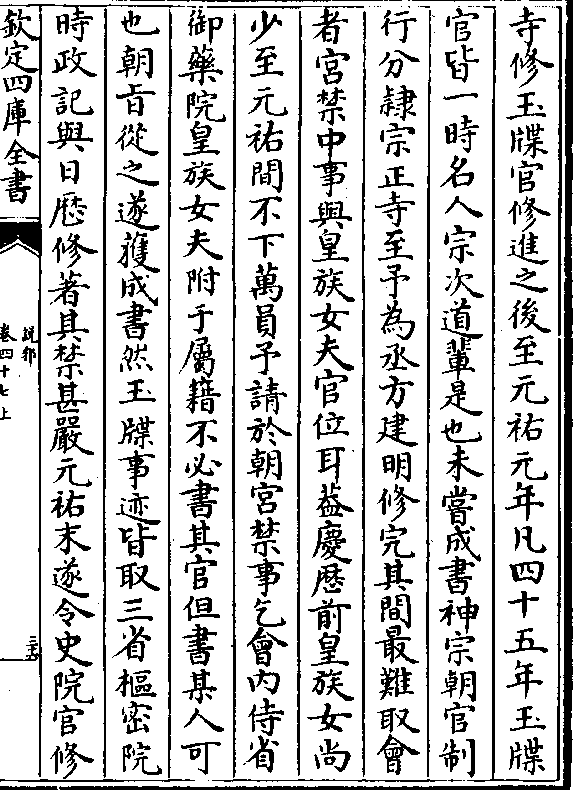 寺修玉牒官修進之後至元祐元年凡四十五年玉牒
官皆一時名人宗次道輩是也未嘗成書神宗朝官制
行分隸宗正寺至予為丞方建明修完其間最難取會
者宮禁中事與皇族女夫官位耳葢慶歴前皇族女尚
少至元祐間不下萬員予請於朝宮禁事乞會內侍省
御藥院皇族女夫附于屬籍不必書其官但書某人可
也朝旨從之遂蒦成書然玉牒事迹皆取三省樞密院
時政記與日歴修著其禁甚嚴元祐末遂令史院官修
欽定四庫全書
說郛
卷四十七上